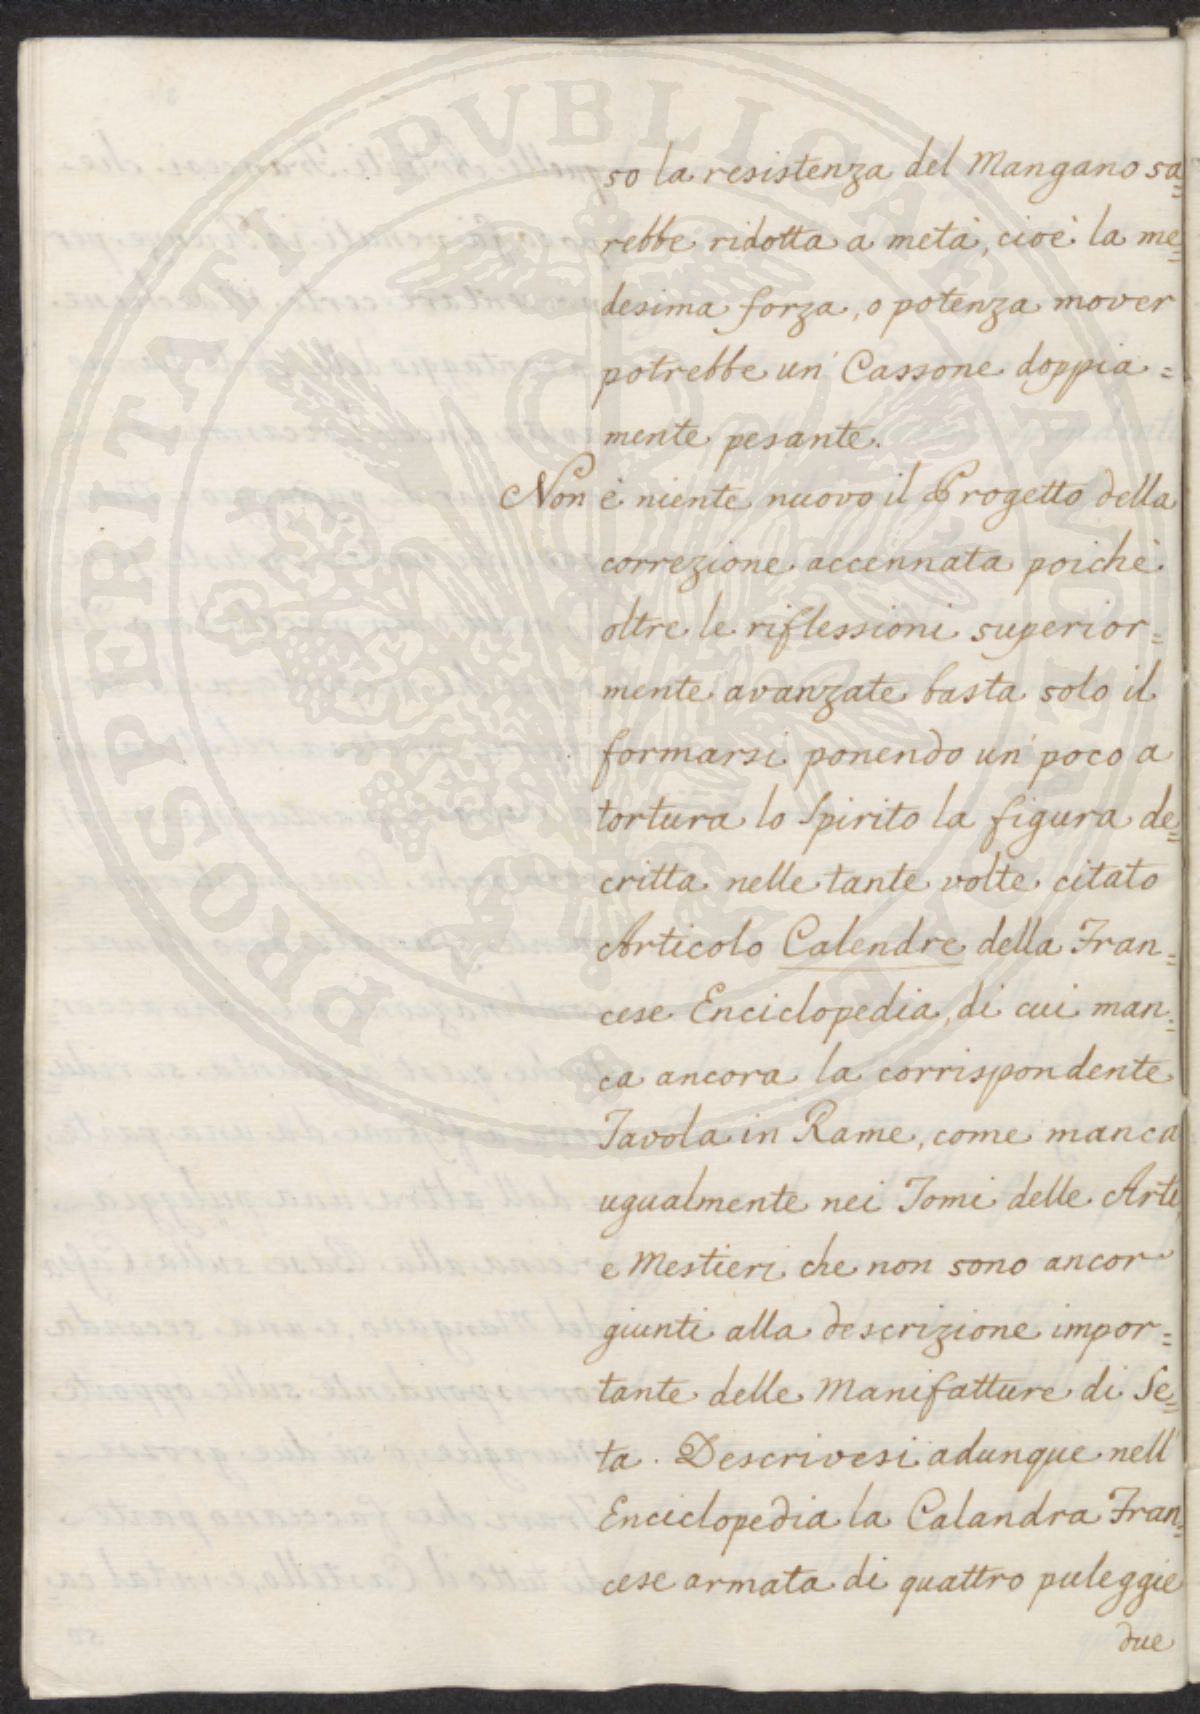 PROSPERITATI PUBLICAE AUGENDAE
so la resistenza del Mangano sa=
rebbe ridotta a metà, cioè la me=
desima forza, o potenza mover
potrebbe un' Cassone doppia=
mente pesante.
Non è niente nuovo il Progetto della
correzione accennata poichè
oltre le riflessioni superior=
mente avanzate basta solo il
formarsi ponendo un' poco a
tortura lo Spirito la figura de=
critta nelle tante volte citato
Articolo Calendre della Fran=
cese Enciclopedia, di cui man=
ca ancora la corrispondente
Tavola in Rame, come manca
ugualmente nei Tomi delle Arti,
e Mestieri che non sono ancor
giunti alla descrizione impor=
tante delle Manifatture di Se=
ta. Descrivesi adunque nell'
Enciclopedia la Calandra Fran=
cese armata di quattro puleggie
due